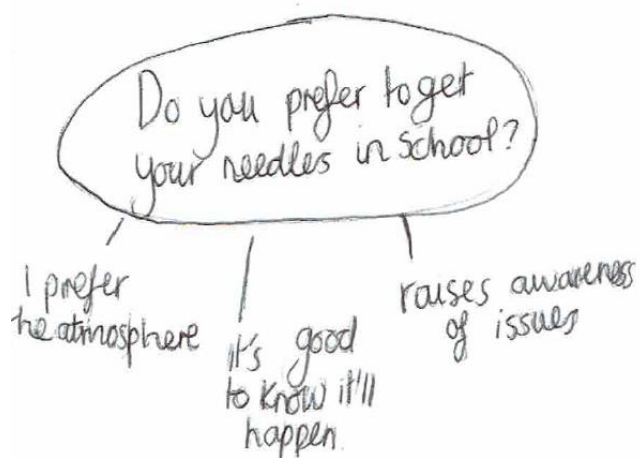 Do you prefer to get
your needles in school?
I prefer
he atmosphere
it's good
to know it'll
happen.
raises awareness
of issues